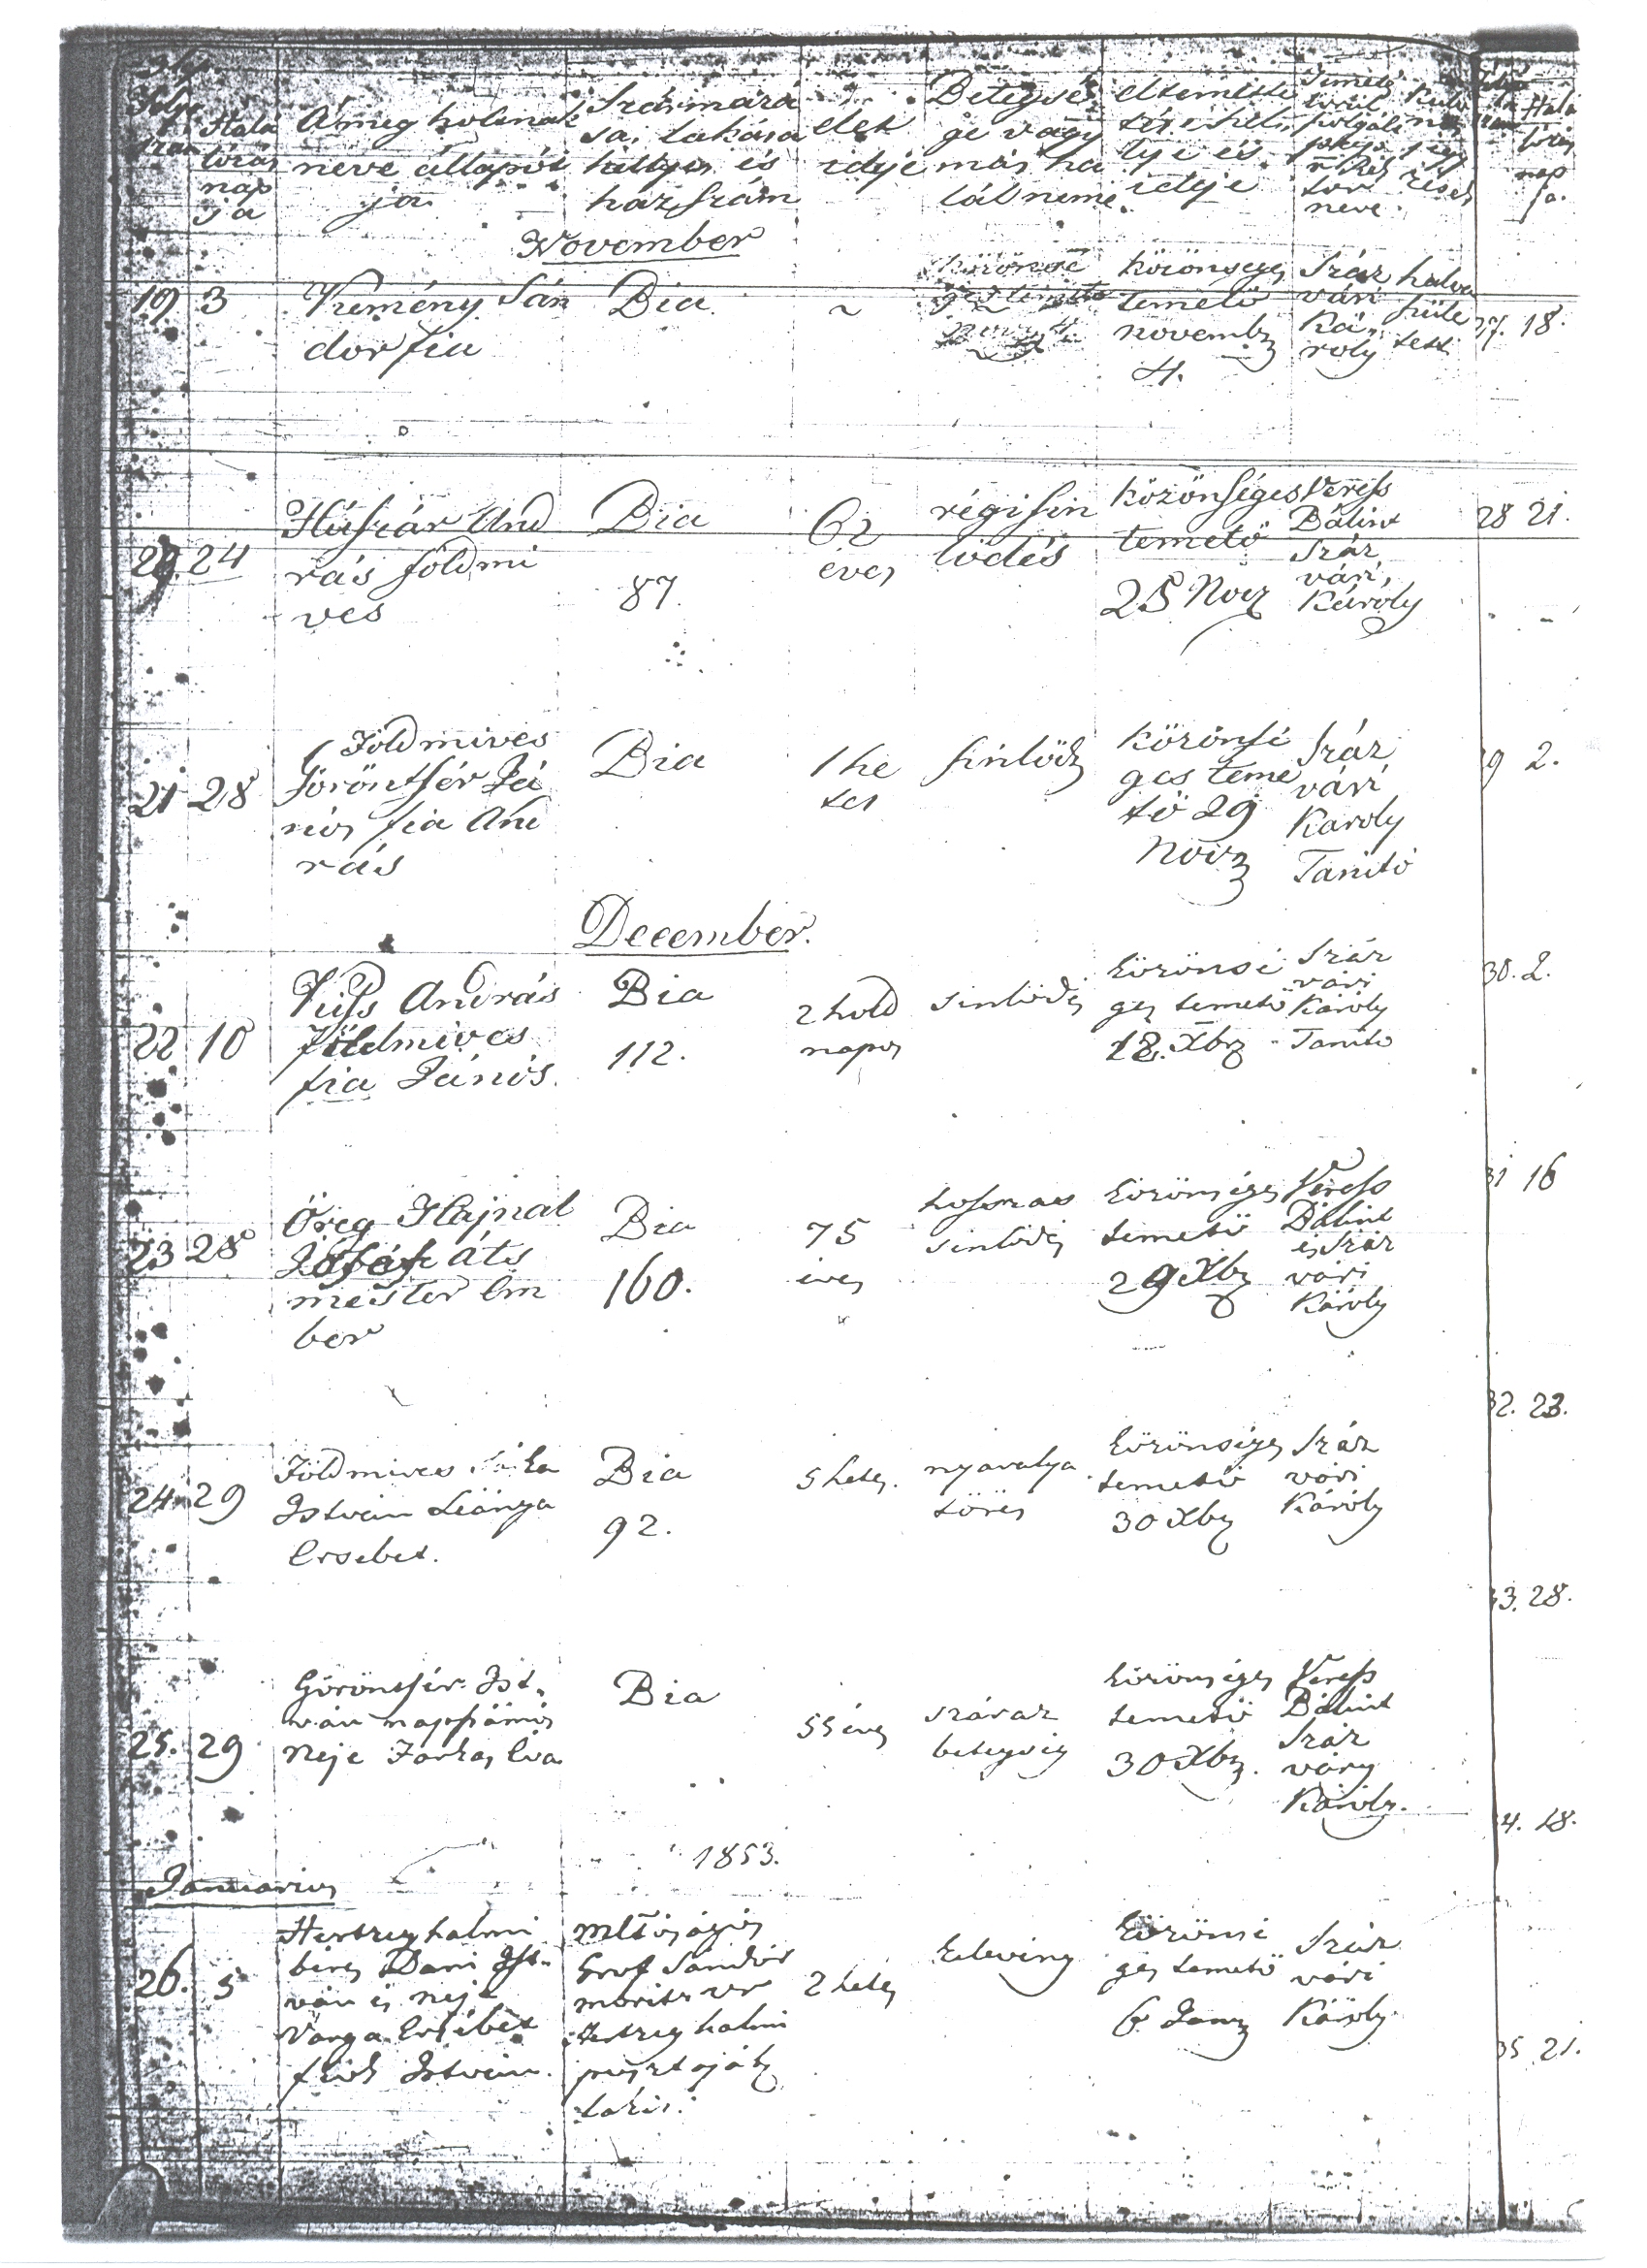 A meg holtnak
neve állapot
ja
Származá
sa, lakása
hellye és
ház szám
élet
ideje
Betegsé
ge vagy
más ha
lál neme
eltemette
tés hely
lye és
ideje
neve
Halá
lozás
nap
ja
November
19 3
Kemény Sán
dor fia
Bia
közönséges
temető
novembr
4.
Szár
vári
Ká
roly
halva
szüle
tett
20. 24
Huszár And
rás földmi
ves
Bia
87.
62
éves
régi sin
lődés
közönséges
temető
25 Novr
Veress
Bálint
Szár
vári
Károly
21 28
Földmives
Göröntsér Já
nos fia And
rás
Bia
1 he
tes
sinlődés
közönsé
ges teme
tő 29
Novr
Szár
vári
Károly
Tanító
December.
22 10
Vass András
földmives
fia János.
Bia
112.
2 hold
napos
sinlődés
közönsé
ges temető
12. Xbr
Szár
vári
Károly
Tanito
23 28
Öreg Hajnal
Jósef áts
mester em
ber
Bia
160.
75
éves
hosszas
sinlődés
közönséges
temető
29 Xbr
Veress
Bálint
és Szár
vári
Károly
24. 29
Földmives
István Leánya
Ersebet.
Bia
92.
5 hetes.
nyavalya
törés
közönséges
temető
30 Xbr
Szár
vári
Károly
25. 29
Göröntsér Ist
ván napszámos
Neje Farkas Éva
Bia
55 éves
száraz
betegség
közönséges
temető
30 Xbr.
Veress
Bálint
Szár
váry
Károly.
1853.
Januarius
26. 5
Hertzeghalmi
béres Dani Ist
ván és neje
Varga Ersébet
fiok István.
Mltóságos
Gróf Sándor
Moritz ur
Hertzeghalmi
pusztáján
lakos.
2 hetes
közönsé
ges temető
6 Janr
Szár
vári
Károly
18.
28 21.
2.
30. 2.
31 16
32. 23.
33. 28.
18.
35 21.